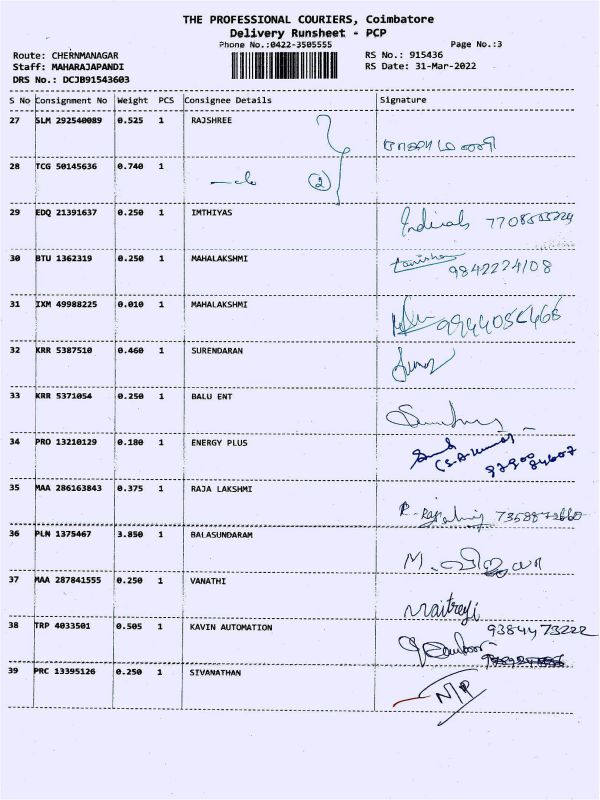 THE PROFESSIONAL COURIERS, Coimbatore
Delivery Runsheet - PCP
Phone No.:0422-3505555
Page No.:3
Route: CHERNMANAGAR
RS No.: 915436
Staff: MAHARAJAPANDI
RS Date: 31-Mar-2022
DRS No.: DCJB91543603
S No Consignment No Weight PCS Consignee Details Signature
27 SLM 292540089 0.525 1 RAJSHREE
28 TCG 50145636 0.740 1
2
29 EDQ 21391637 0.250 1 IMTHIYAS
30 BTU 1362319 0.250 1 MAHALAKSHMI
9842224108
31 IXM 49988225 0.010 1 MAHALAKSHMI
32 KRR 5387510 0.460 1 SURENDARAN
33 KRR 5371054 0.250 1 BALU ENT
34 PRO 13210129 0.180 1 ENERGY PLUS
35 MAA 286163843 0.375 1 RAJA LAKSHMI
36 PLN 1375467 3.850 1 BALASUNDARAM
37 MAA 287841555 0.250 1 VANATHI
Maitreyi
38 TRP 4033501 0.505 1 KAVIN AUTOMATION 9384473222
39 PRC 13395126 0.250 1 SIVANATHAN
N/P